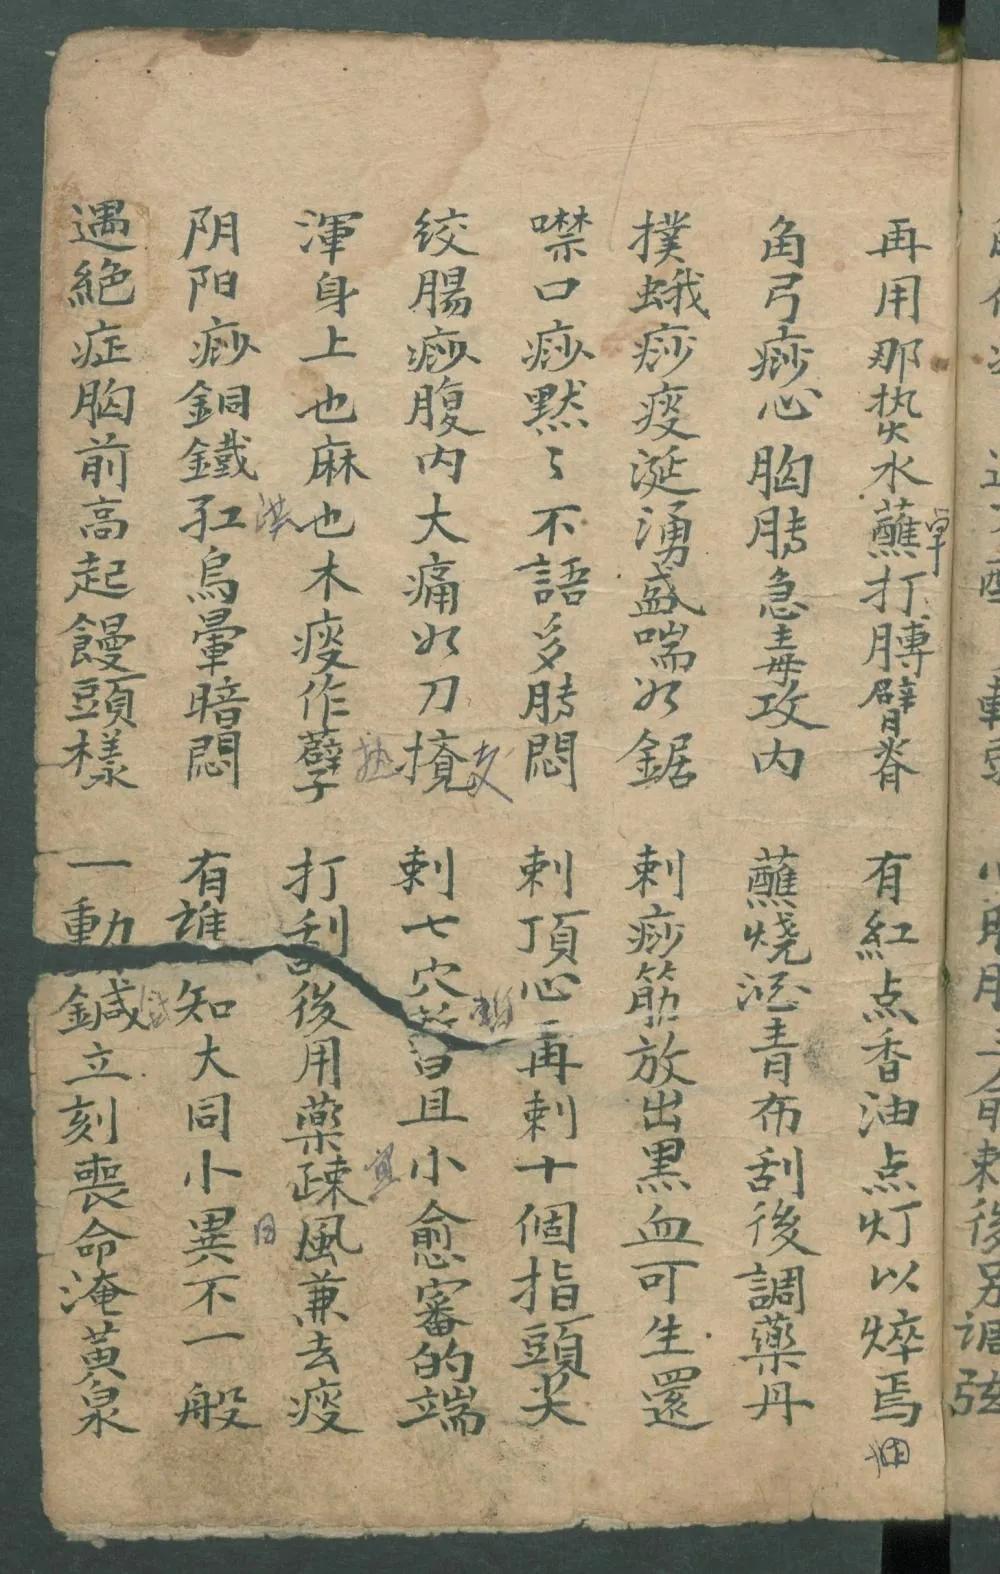 再用那热水蘸打膊臂脊 有紅点香油点灯以焠焉
角弓痧心胸胀急毒攻内 蘸烧酒青布刮後調藥丹
撲蛾痧痰涎湧盛喘如鋸 刺痧筋放出黑血可生還
噤口痧默〻不語多胀悶 刺頂心再刺十個指頭尖
絞腸痧腹内大痛如刀攪 刺七穴 且小愈審的端
渾身上也麻也木痰作孽 打刮後用藥疎風兼去痰
阴阳痧銅鐵 烏暈暗悶 有誰知大同小異不一般
遇絶症胸前高起饅頭樣 一動鍼立刻喪命淹黃泉